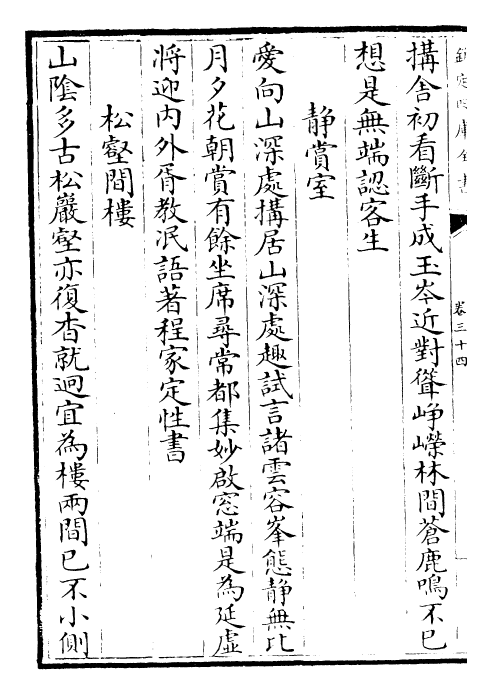 欽定四庫全書
卷三十四
搆舎初看斷手成玉岑近對聳峥嶸林間蒼鹿鳴不已
想是無端認客生
静賞室
愛向山深處搆居山深處趣試言諸雲容峯態静無比
月夕花朝賞有餘坐席尋常都集妙啟窓端是為延虚
將迎内外胥教泯語著程家定性書
松壑間樓
山陰多古松巖壑亦復杳就迥宜為樓兩間已不小側